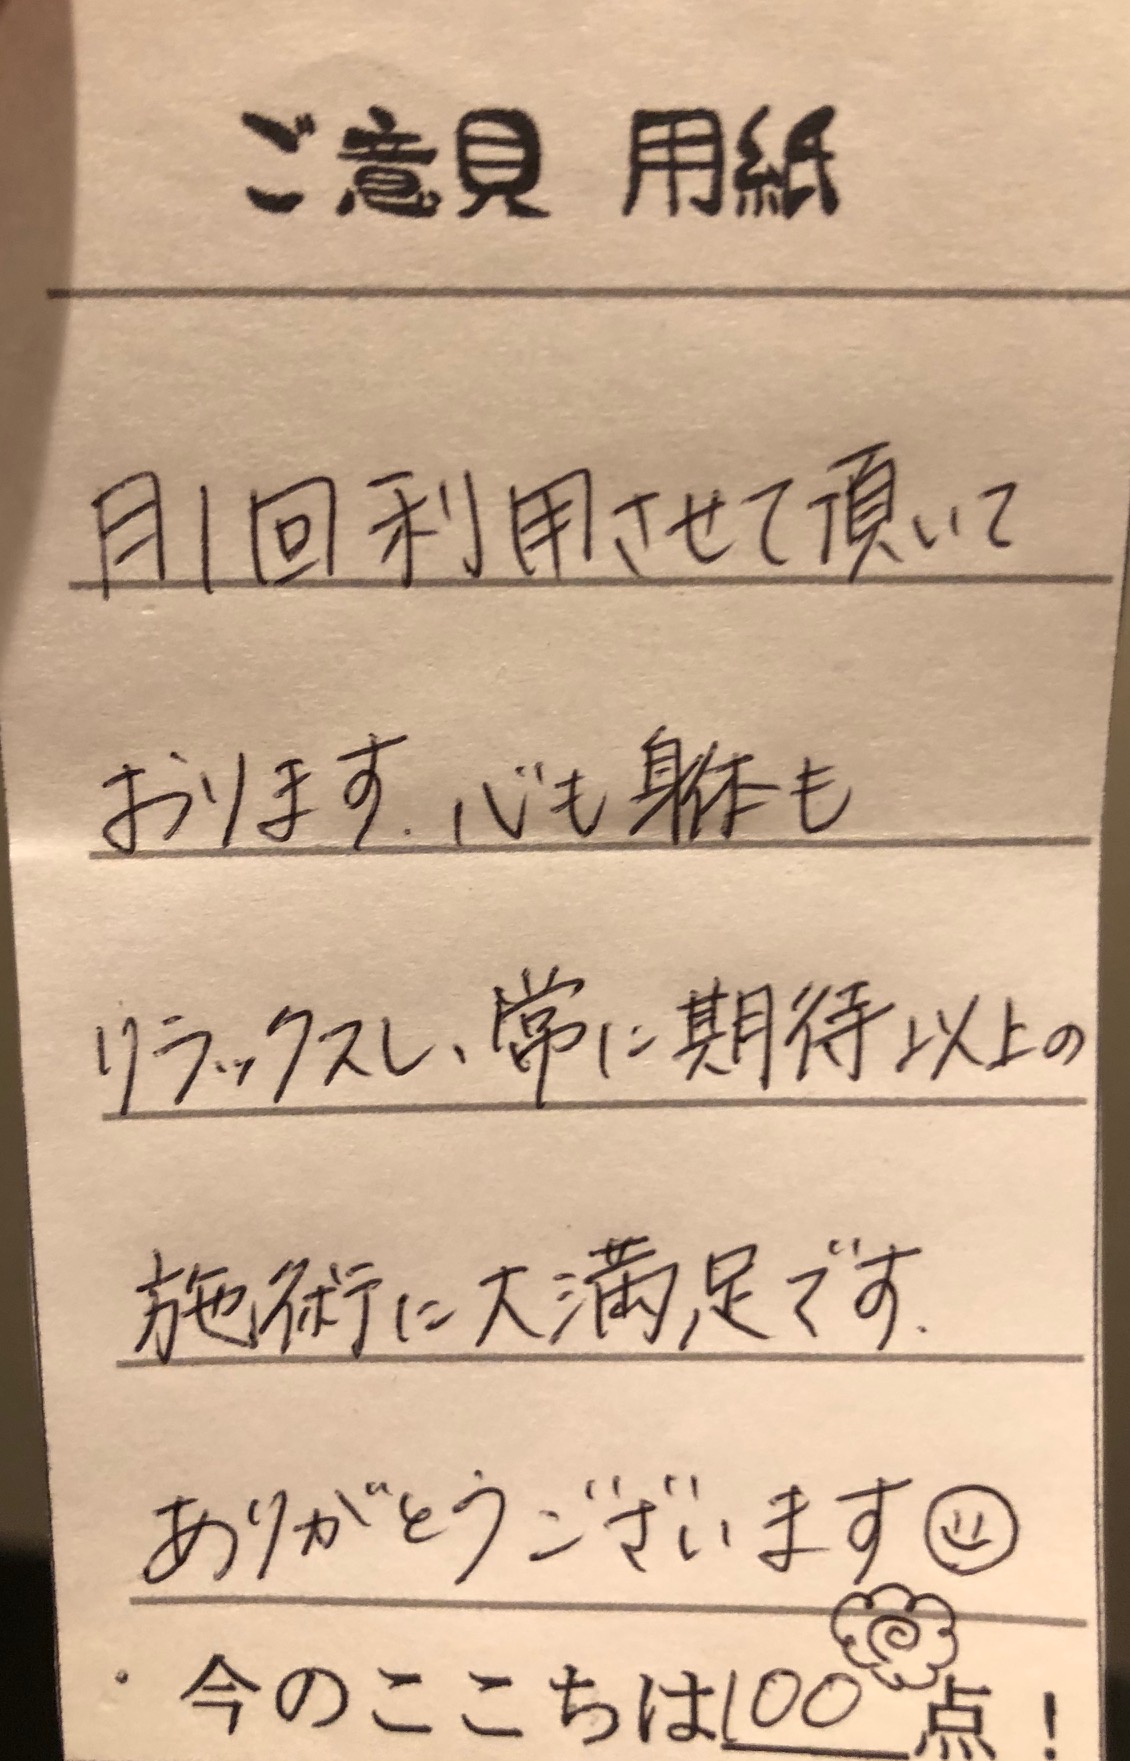 ご意見 用紙
月1回利用させて頂いて
おります.心も身体も
リラックスし、常に期待以上の
施術に大満足です.
ありがとうございます
・今のここちは100点!